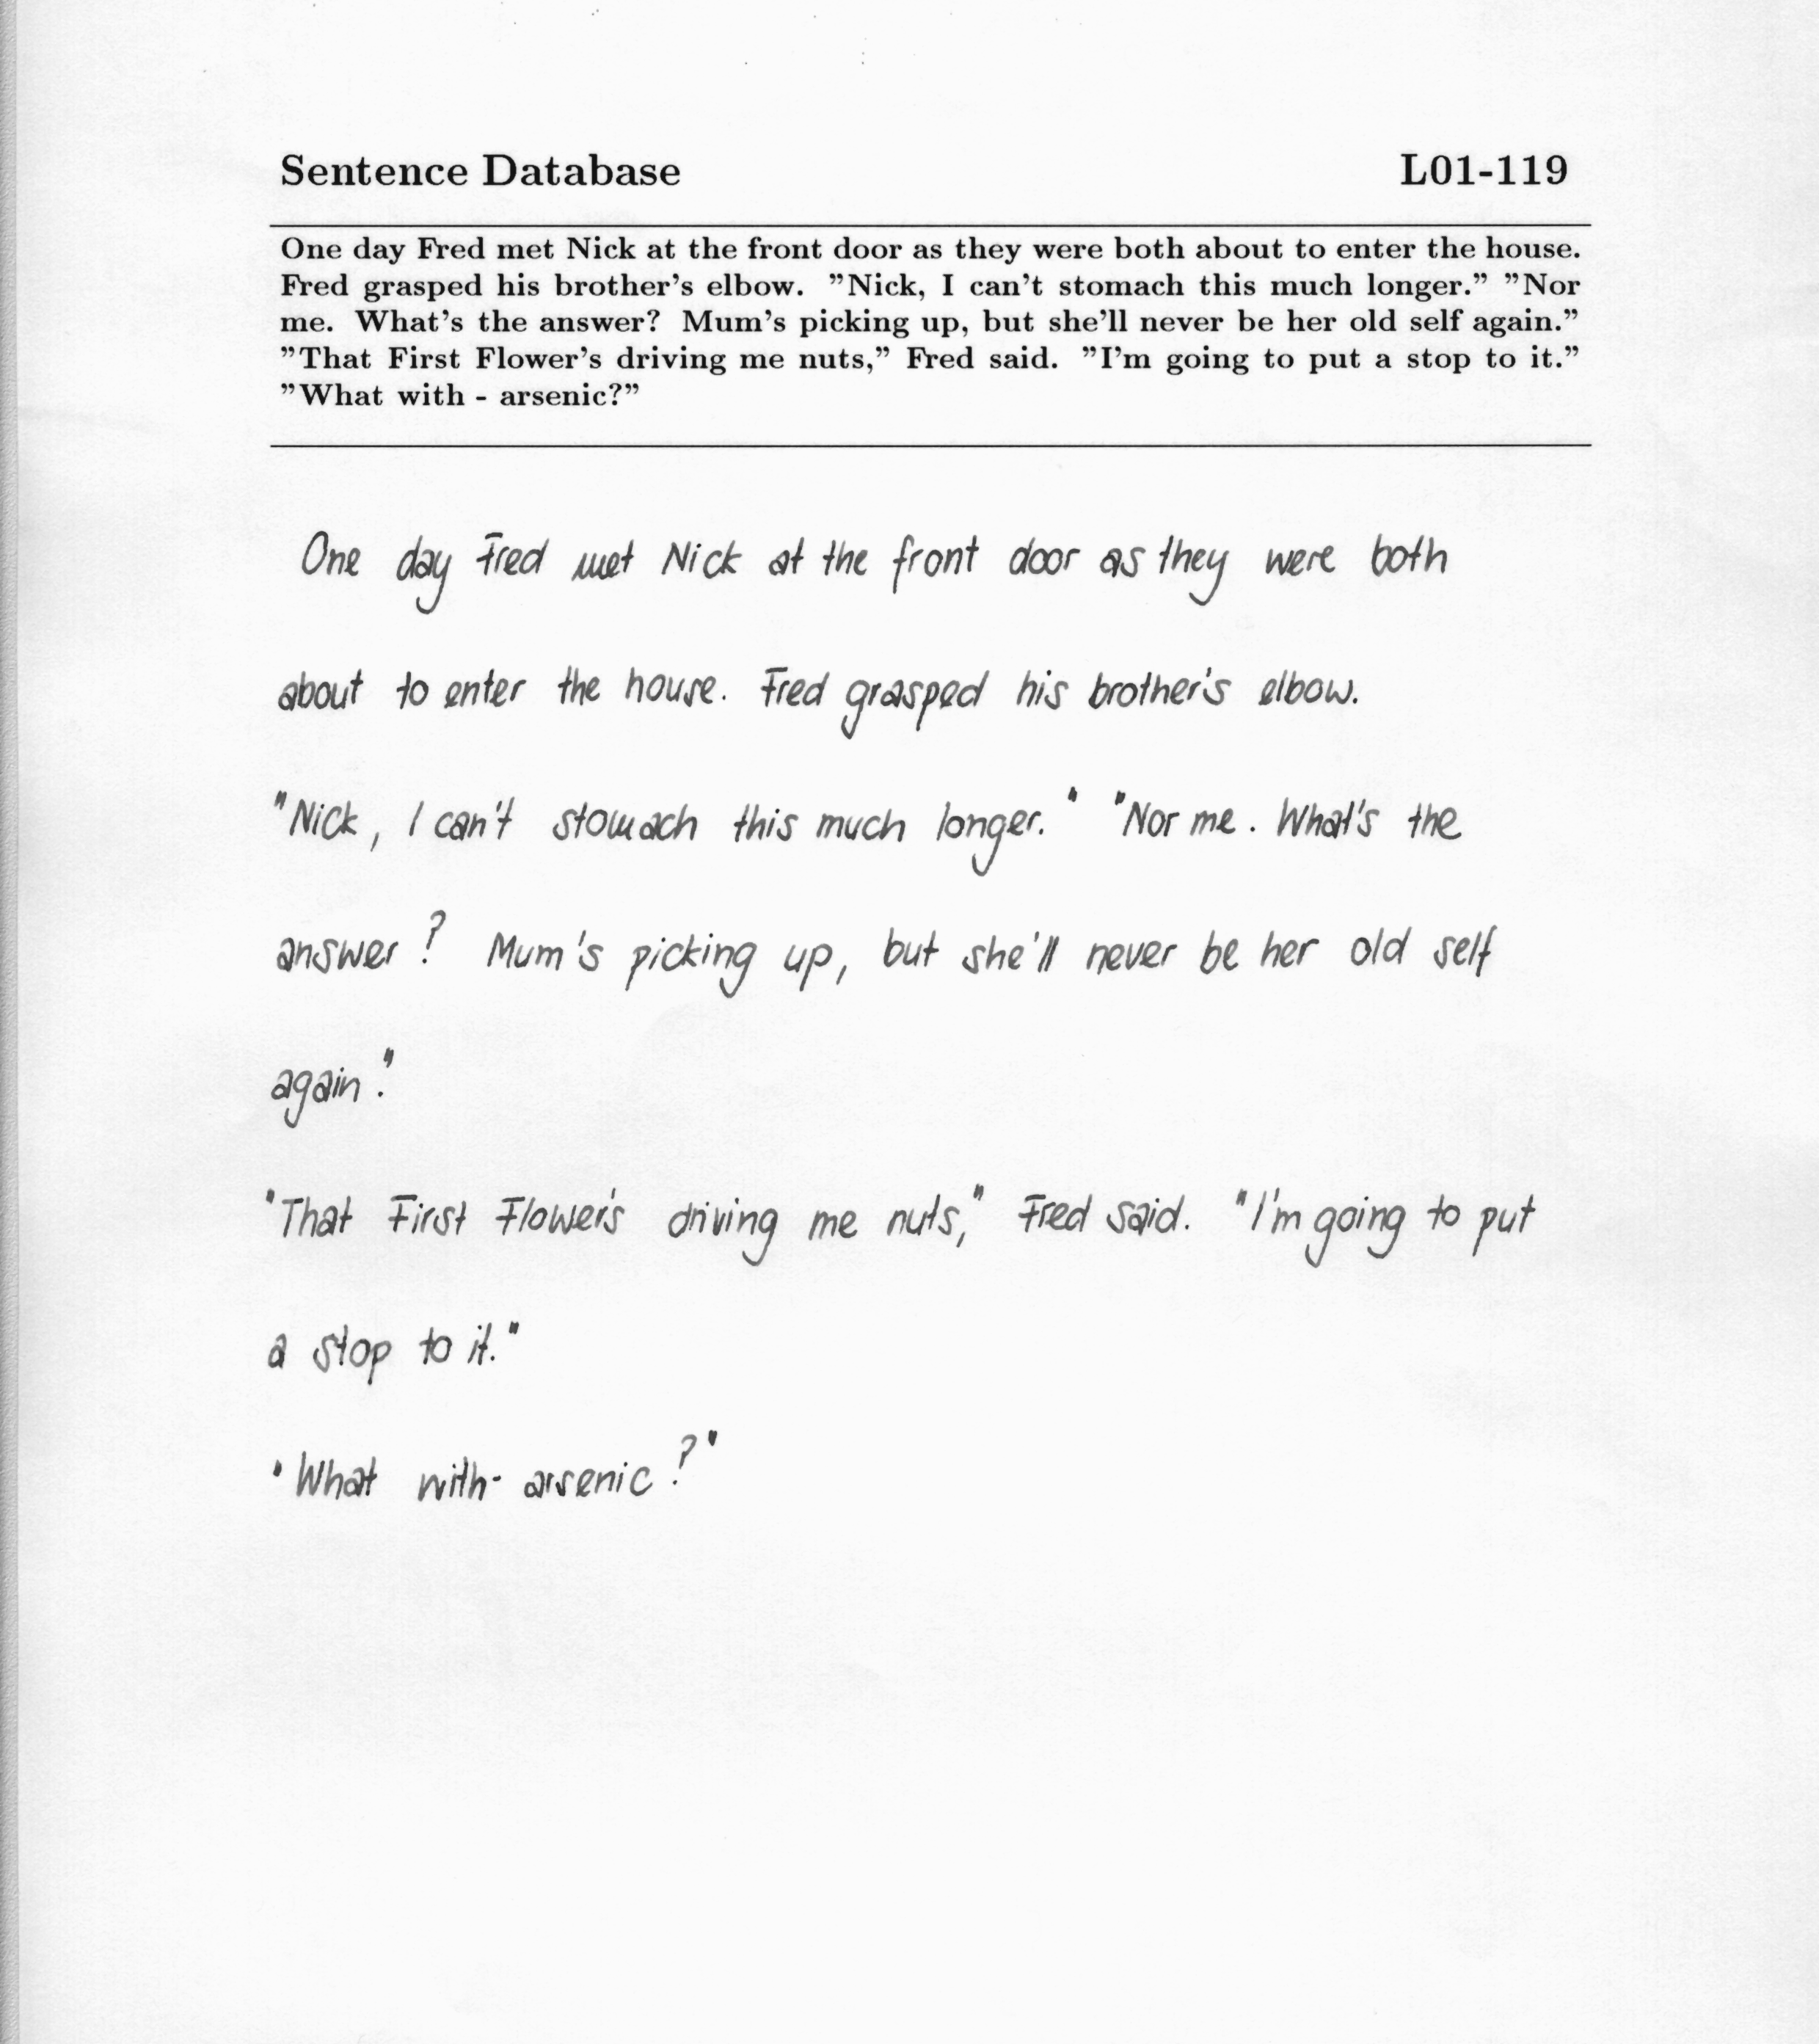 Sentence Database L01-119
One day Fred met Nick at the front door as they were both about to enter the house.
Fred grasped his brother's elbow. ”Nick, I can't stomach this much longer.” ”Nor
me. What's the answer? Mum's picking up, but she'll never be her old self again.”
”That First Flower's driving me nuts,” Fred said. ”I'm going to put a stop to it.”
”What with - arsenic?”
One day Fred met Nick at the front door as they were both
about to enter the house. Fred grasped his brother's elbow.
"Nick, I can't stomach this much longer." "Nor me. What's the
answer? Mum's picking up, but she'll never be her old self
again."
"That First Flower's driving me nuts," Fred said. "I'm going to put
a stop to it."
"What with - arsenic?"